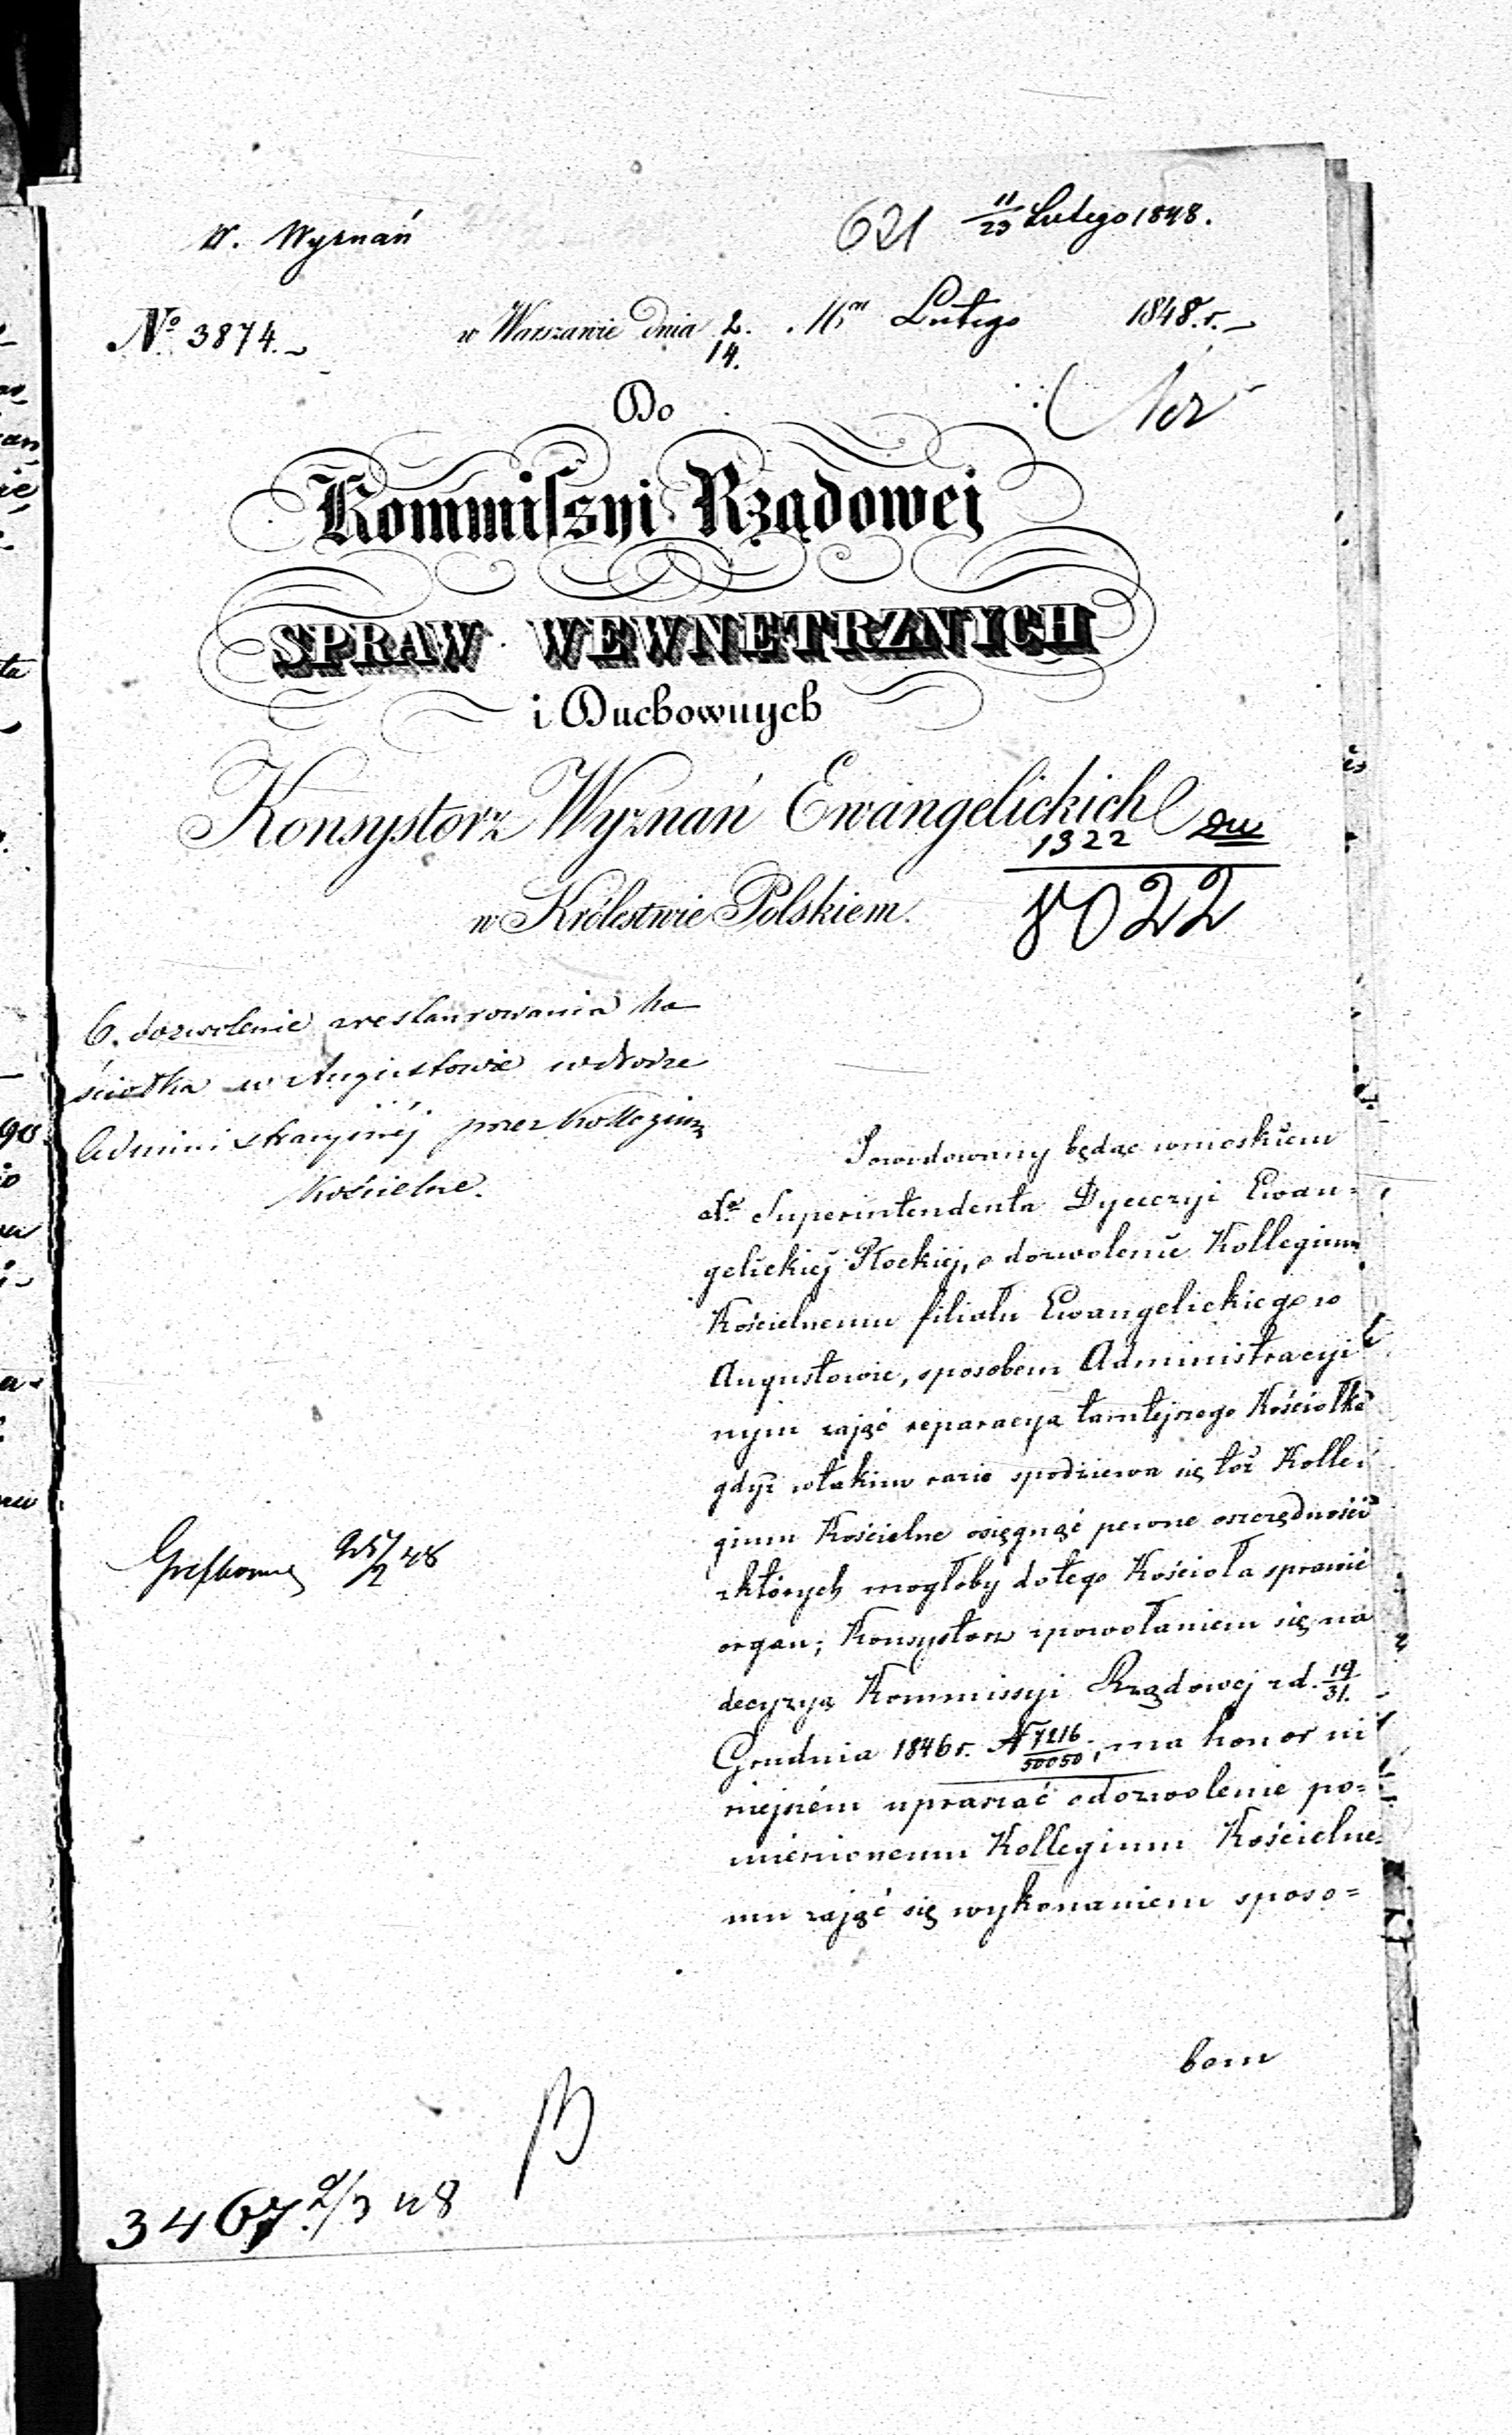 W. Wyznań
621 11/23 Lutego 1848.
No 3874.
w Warszawie dnia 2./14. Mca Lutego 1848. r.
Do
Kommissyi Rządowej
SPRAW WEWNĘTRZNYCH
i Duchownych
Konsystorz Wyznań Ewangelickich
w Królestwie Polskiem.
1322
8022
O dozwolenie zrestaurowania ko
ściołka w Augustowie w drodze
Administracyjnéj przez Kollegium
Kościelne.
Powodowany będąc wnioskiem
Superintendenta Dyecezyi Ewan=
gelickiej Płockiej, o dozwolenie Kollegium
Kościelnemu filiału Ewangelickiego w
Augustowie, sposobem Administracyi
nym zająć reparacyą tamtejszego Kościołka
gdyż w takim razie spodziewa się toż Kolle=
gium Kościelne osięgnąć pewne oszczędności
z których mogłoby do tego Kościoła sprawić
organ; Konsystorz z powołaniem się na
decyzyą Kommissyi Rządowej z d. 19/31.
Grudnia 1846 r. N 7216/50050, ma honor ni
niejszém upraszać o dozwolenie po=
mienionemu Kollegium Kościelne=
mu zająć się wykonaniem sposo=
bem
25/2 48
3467 2/3 48